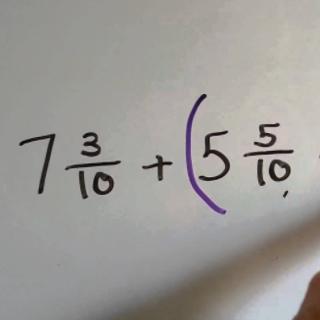 7 3/10 + (5 5/10